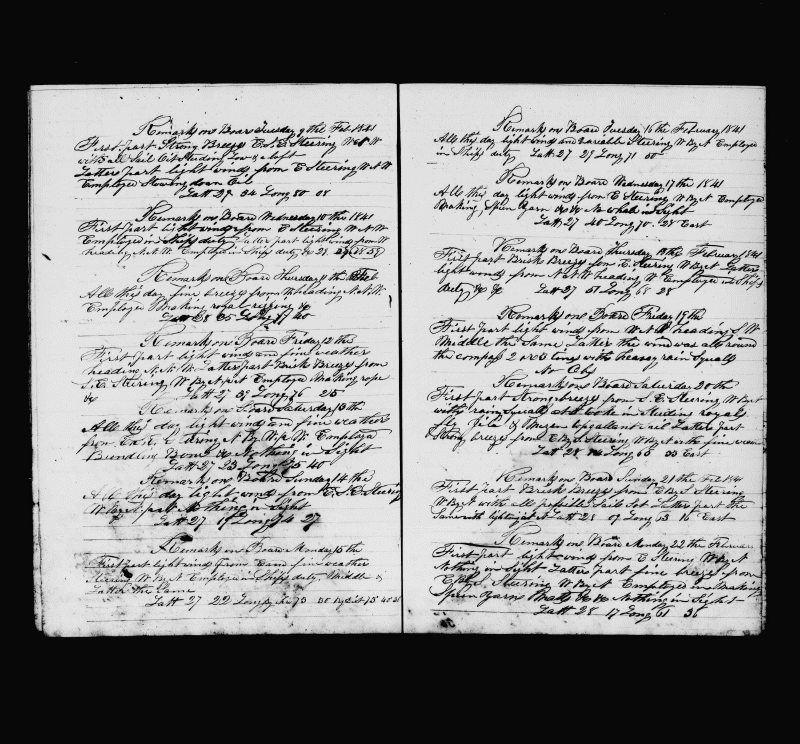 Remarks on Board Tuesday 9th Feb 1841
First part Strong Breeze E.S.E. Steering W
with all Sail Out Studing Low & aloft
Latters part light winds from E Steering W N W
Employed Stowing down Oil
Latt 27 04 Long 80 08
Remarks on Board Wednesday 10th 1841
First part light winds from E Steering W N W
Employed in Ships duty Latter part light winds from W
heading N.N.W. Employed in Ships duty
Remarks on Board Thursday 11th
All this day fine breezes from W heading N.N.W.
Employed Making royal rigging &c
Latt 28 05 Long 77 40
Remarks on Board Friday 12th
First part light winds and fine weather
heading N.N.W. Latter part Brisk Breezes from
Steering W By N Employed Making rope
&c Latt 27 Long 76 25
Remarks on Board Saturday 13th
All this day light winds and fine weather
from Employed
Bundling Bone & Nothing in Sight
Latt 27 23 Long 75 40
Remarks on Board Sunday 14 the
All this day light winds from E.S.E. Steering
W By N Nothing in Sight
Latt 27 Long 74 27
Remarks on Board Monday 15th
First part light winds from E and fine weather
Steering W By N Employed in Ships duty Middle &
Latter the Same
Latt 27 22 Long 73
Remarks on Board Tuesday 16th February 1841
All this day light winds and variable Steering W By N Employed
in Ships duty Latt 27 27 Long 71 50
Remarks on Board Wednesday 17th 1841
All this day light winds from E Steering W By N Employed
Making Spun Yarn &c &c No whale in Sight
Latt 27 40 Long 70 28 East
Remarks on Board Thursday 18th February 1841
First part Brisk Breeze from E Steering W By N Latters
light winds from N.N.W. heading W Employed in Ships
duty &c &c Latt 27 51 Long 68 28
Remarks on Board Friday 19th
First part light winds from W N W heading S W
Middle the Same Latter the wind was all round
the compass 2 or 3 times with heavy rain Squalls
No Obs
Remarks on Board Saturday 20th
First part Strong breezes from S.E. Steering W By N
with rain Squalls took in Studing royals
fly Jib & Mizen topgallant sail Latters part
Strong breezes from E By S Steering W By N with fine weather
Latt 28 04 Long 65 00 East
Remarks on Board Sunday 21 the Feb 1841
First part Brisk Breezes from E By N Steering
W By N with all possible Sail Set Latter part the
Same with light Latt 28 07 Long 63 10 East
Remarks on Board Monday 22 the February
First part light winds from E Steering W By N
Nothing in Sight Latters part fine breezes from
E By S Steering W By N Employed in Making
Spun Yarns Matts &c &c Nothing in Sight
Latt 28 17 Long 61 36